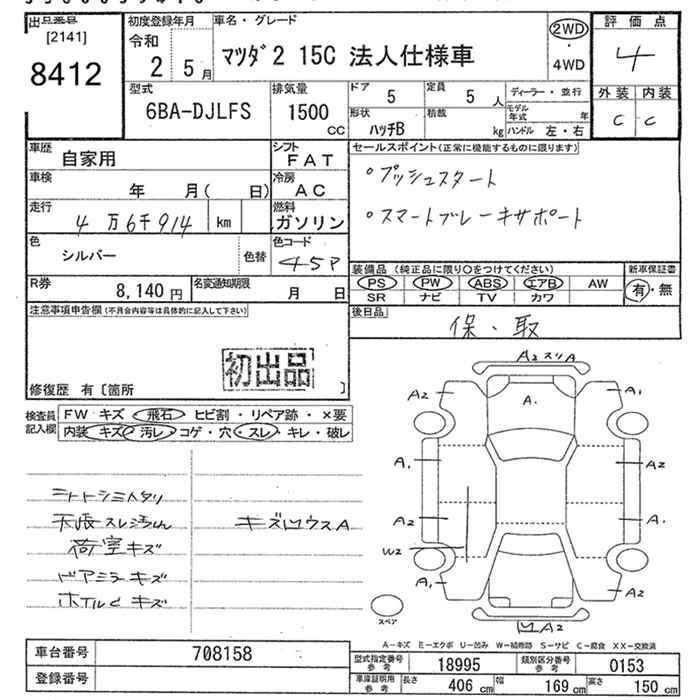 出品番号
[2141]
8412
初度登録年月
令和
2 5月
車名・グレード
マツダ2 15C 法人仕様車
2WD
・
4WD
評価点
4
外装 内装
C C
型式
6BA-DJLFS
排気量
1500
CC
ドア
5
定員
5人
形状
ハッチB
積載
kg
ディーラー・並行
モデル年式 年
ハンドル 左・右
車歴
自家用
シフト
FAT
車検
年 月( 日)
冷房
AC
走行
4万6千914 km
燃料
ガソリン
色
シルバー
色替
色コード
45P
R券
8,140円
名変通知期限
月 日
セールスポイント(正常に機能するものに限ります)
・プッシュスタート
・スマートブレーキサポート
装備品(純正品に限り○をつけてください)
PS PW ABS エアB AW
SR ナビ TV カワ
新車保証書
有・無
後日品
保・取
注意事項申告欄(不具合内容等は具体的に記入して下さい)
初出品
修復歴 有〔箇所 〕
検査員記入欄
FW キズ・飛石・ヒビ割・リペア跡・×要
内装 キズ・汚レ・コゲ・穴・スレ・キレ・破レ
シートシミヘタリ
天張スレ汚れ
荷室キズ
ドアミラーキズ
ホイルCキズ
キズUウスA
A2スリA
A2
A.
A1
A1
A2
A2
A.
W2
A1
A2
スペア
UA2
A-キズ E-エクボ U-凹み W-補修跡 S-サビ C-腐食 XX-交換済
車台番号
708158
登録番号
型式指定番号 参考
18995
類別区分番号 参考
0153
車庫証明用 参考
長さ 406cm 幅 169cm 高さ 150cm